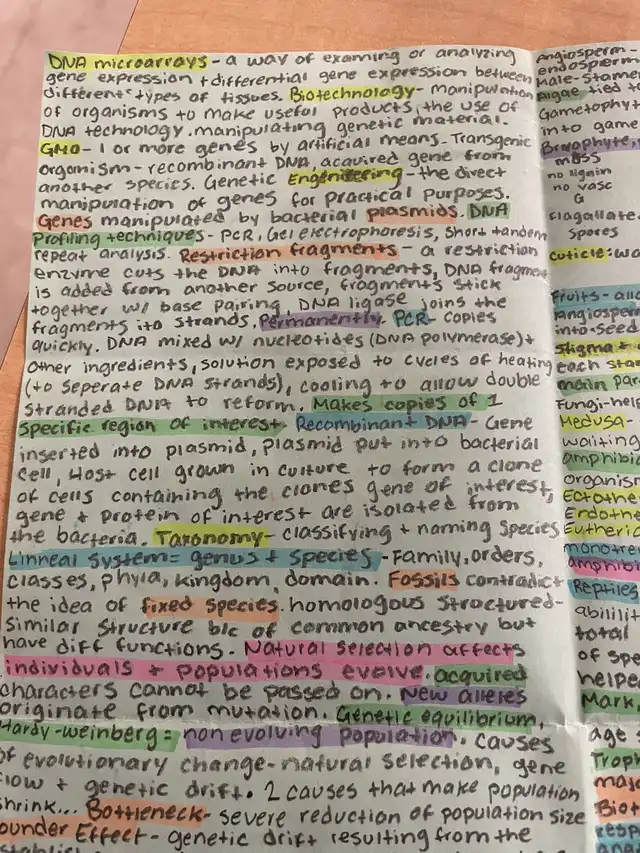 DNA microarrays - a way of examing or analyzing
gene expression + differential gene expression between
different types of tissues. Biotechnology - manipulation
of organisms to make useful products, the use of
DNA technology. manipulating genetic material.
GMO - 1 or more genes by artificial means. Transgenic
organism - recombinant DNA, acquired gene from
another species. Genetic Engenitering - the direct
manipulation of genes for practical purposes.
Genes manipulated by bacterial plasmids. DNA
Profiling techniques - PCR, Gel electrophoresis, Short tandem
repeat analysis. Restriction fragments - a restriction
enzyme cuts the DNA into fragments, DNA fragment
is added from another source, fragments stick
together w/ base pairing, DNA ligase joins the
fragments ito strands, Permanently. PCR - copies
quickly. DNA mixed w/ nucleotides (DNA polymerase) +
other ingredients, solution exposed to cycles of heating
(to seperate DNA strands), cooling to allow double
stranded DNA to reform. Makes copies of 1
specific region of interest. Recombinant DNA - Gene
inserted into plasmid, plasmid put into bacterial
cell, Host cell grown in culture to form a clone
of cells containing the clones gene of interest,
gene + protein of interest are isolated from
the bacteria. Taxonomy - classifying + naming species
Linneal System = genus + species - Family, orders,
classes, phyla, kingdom, domain. Fossils contradict
the idea of fixed species. homologous structured -
similar structure b/c of common ancestry but
have diff functions. Natural selection affects
individuals + populations evolve. acquired
characters cannot be passed on. New alleles
originate from mutation. Genetic equilibrium,
Hardy-weinberg = non evolving population. causes
of evolutionary change - natural selection, gene
flow + genetic drift. 2 causes that make population
shrink... Bottleneck - severe reduction of population size
ounder Effect - genetic drift resulting from the
Angiosperm -
endosperm
Male - Stamen
Algae tied to
Gametophyt
into game
Bryophyte,
moss
no lignin
no vasc
G
flagallate
spores
cuticle: wa
Fruits - all
angiosper
into seed
Stigma +
each sta
main par
Fungi - help
Medusa -
waiting
amphibi
organism
Ectothe
Endothe
Eutheric
monotre
amphib
Reptiles
abilit
total
of spe
helpe
Mark,
age s
Troph
major
Biot
resp